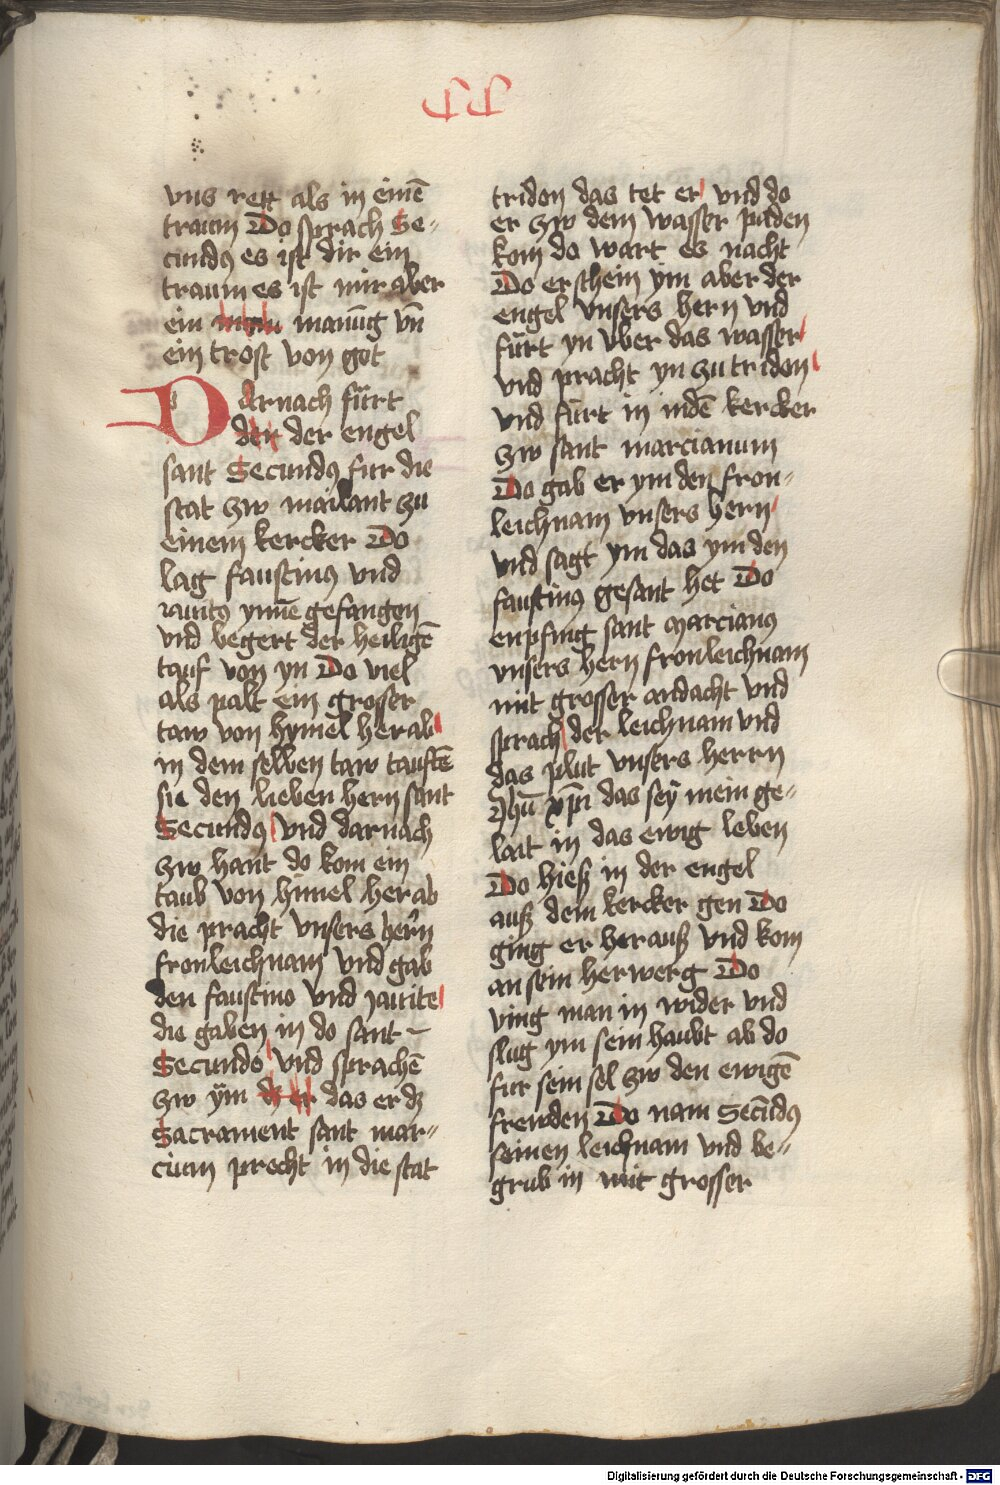 vns rett als in einē
traum Do sprach Se-
cundꝰ es ist dir ein
traum es ist mir aber
ein manūg vn̄
ein trost von got
Darnach fürt
den der engel
sant Secundꝰ fur die
stat zw mailant zu
einem kercker Do
lag faustinꝰ vnd
iauitꝰ ynnē gefangen
vnd begert der heiligē
tauf von yn Do viel
als palt ein grosser
taw von hymel herab
in dem selben taw tauftē
sie den lieben hern sant
Secundꝰ vnd darnach
zw hant do kom ein
taub von himel herab
die pracht vnsers herrn
fronleichnam vnd gab
den faustino vnd Jauite
die gaben in do sant
Secundo vnd sprachē
zw ym dz er das er dz
Sacrament sant mar-
cian precht in die stat
tridon das tet er vnd do
er zw dem wasser paden
kom do wart es nacht
Do erschein ym aber der
engel vnsers hern vnd
fürt yn vber das wasser
vnd pracht yn zu tridon
vnd fürt in indē kercker
zw sant marcianum
Do gab er ym den fron-
leichnam vnsers hern
vnd sagt ym das ym den
faustinꝰ gesant het Do
enpfing sant Marcianꝰ
vnsers hern fronleichnam
mit grosser andacht vnd
sprach der leichnam vnd
das plut vnsers herrn
Jhū xp̄i das sey mein ge-
lait in das ewig leben
Do hieß in der engel
auß dem kercker gen Do
ging er herauß vnd kom
an sein herwerg Do
ving man in wider vnd
slug ym sein haubt ab do
fur sein sel zw den ewigē
frewden Do nam Secūdꝰ
seinen leichnam vnd be-
grub in mit grosser
Digitalisierung gefördert durch die Deutsche Forschungsgemeinschaft - DFG